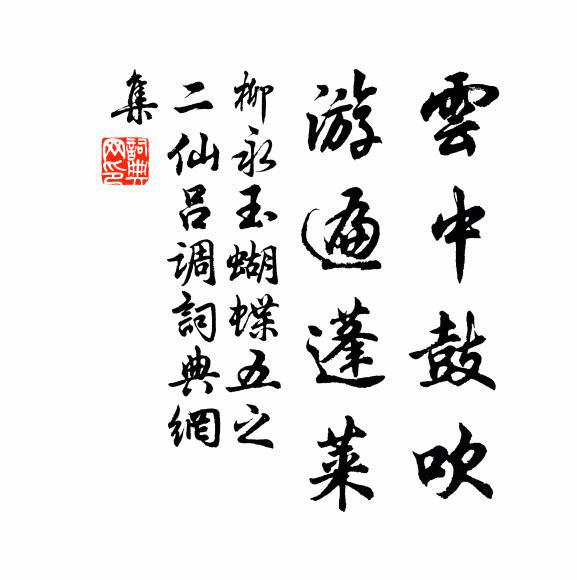 雲中鼓吹
游遍蓬萊
柳永玉蝴蝶五之
二仙吕调詞典網
集
詞典
网印